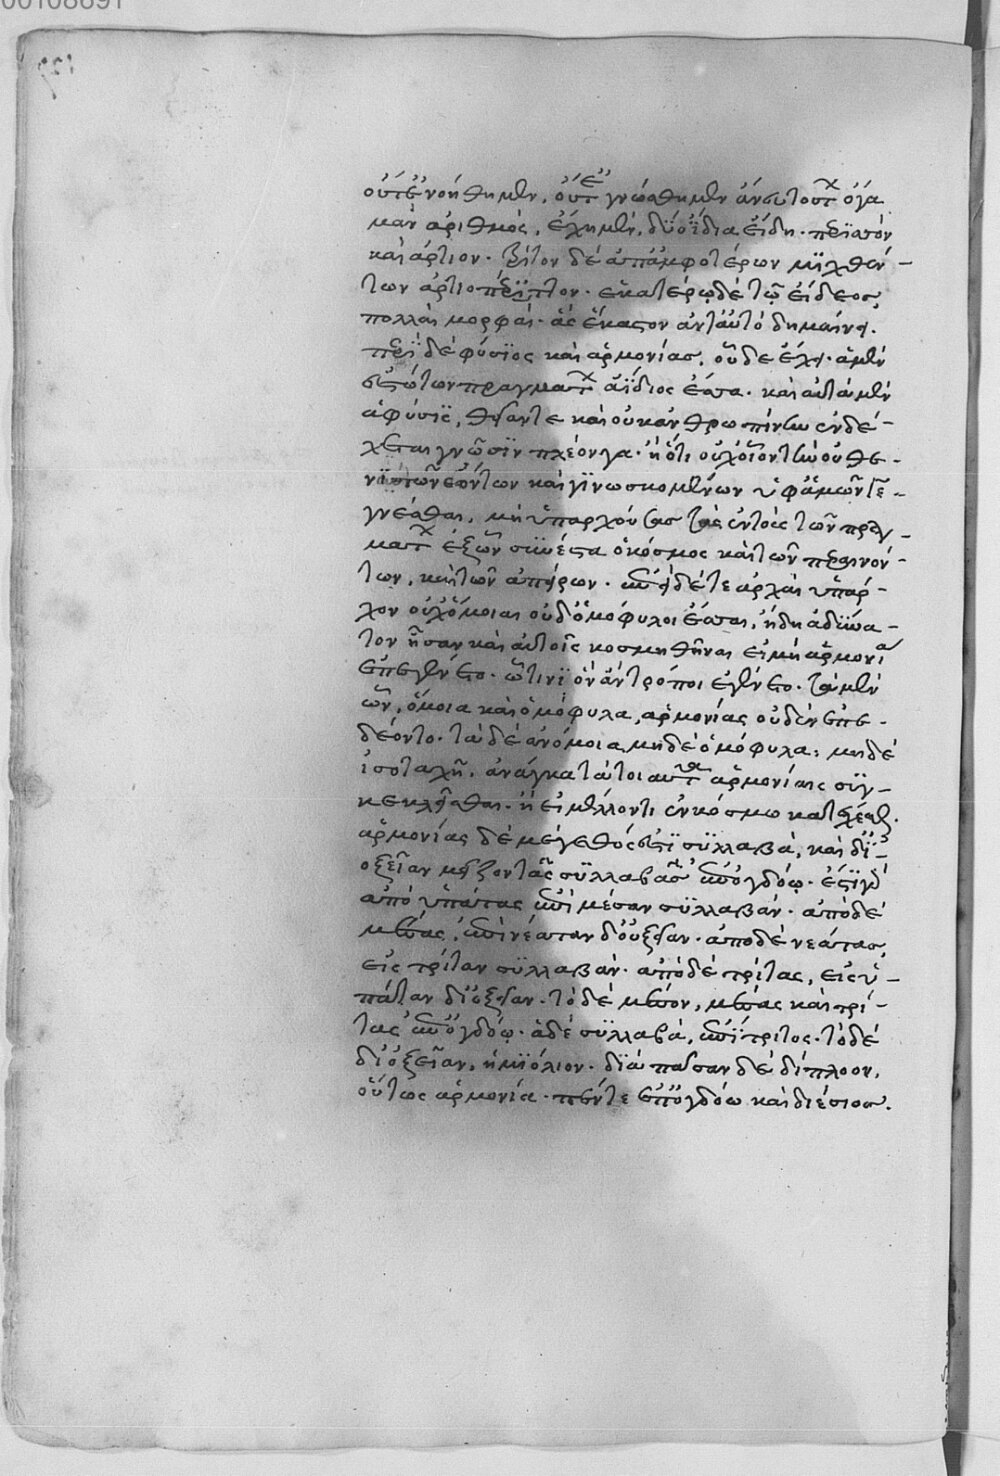 οὔτε νοηθῆμεν, οὔτε γνωσθῆμεν ἄνευ τούτου ὅγα
μὰν ἀριθμὸς, ἔχη μὲν, δύο ἴδια εἴδη. περισσὸν
καὶ ἄρτιον. τρίτον δὲ ἀπ' ἀμφοτέρων μιχθέν-
των ἀρτιοπέριττον. ἑκατέρω δὲ τῶ εἴδεος
πολλαὶ μορφαί. ἃς ἕκαστον ἀνταυτὸ δημαίνει.
περὶ δὲ φύσιος καὶ ἁρμονίας, ὧδε ἔχει. ἁ μὲν
ἐστὼ τῶν πραγμάτων ἀΐδιος ἔσσα. καὶ αὐτὰ μὲν
ἁ φύσις, θείαν τε καὶ οὐκ ἀνθρωπίνην ἐνδέ-
χεται γνῶσιν πλέον γα. ἢ ὅτι οὐχ οἷόν τ' ἦν οὐθε-
νὶ τῶν ἐόντων καὶ γινωσκομένων ὑφ' ἁμῶν γε-
γνέσθαι, μὴ ὑπαρχούσας τᾶς ἐντοῖς τῶν πραγ-
μάτων ἐξ ὧν συνέστα ὁ κόσμος καὶ τῶν περαινόν-
των, καὶ τῶν ἀπείρων. ἐπεὶ δέ τε ἀρχαὶ ὑπάρ-
χον οὐχ ὅμοιαι οὐδ' ὁμόφυλοι ἔσσαι, ἤδη ἀδύνα-
τον ἦς ἂν καὶ αὐτοῖς κοσμηθῆναι εἰ μὴ ἁρμονία
ἐπεγένετο. ᾧτινι ὂν ἂν τρόποι ἐγένετο. τὰ μὲν
ὦν, ὅμοια καὶ ὁμόφυλα, ἁρμονίας οὐδὲν ἐπε-
δέοντο. τὰ δὲ ἀνόμοια μηδὲ ὁμόφυλα, μηδὲ
ἰσοταχῆ, ἀνάγκα τὰ τοιαῦτα ἁρμονίαις συγ-
κεκλεῖσθαι. ἢ εἰ μέλλοντι ἐν κόσμω κατέχεσθαι.
ἁρμονίας δὲ μέγεθός ἐστι συλλαβὰ, καὶ δι'
ὀξειᾶν μεῖζον τᾶς συλλαβᾶς ἐπογδόῳ. ἔστι γὰρ
ἀπὸ ὑπάτας ἐπὶ μέσαν συλλαβάν. ἀπὸ δὲ
μέσας, ἐπὶ νεάταν δι' ὀξειᾶν. ἀπὸ δὲ νεάτας
εἰς τρίταν συλλαβάν. ἀπὸ δὲ τρίτας, εἰς ὑ-
πάταν δι' ὀξειᾶν. τὸ δὲ μέσον, μέσας καὶ τρί-
τας ἐπογδόῳ. ἁ δὲ συλλαβὰ, ἐπίτριτος. τὸ δὲ
δι' ὀξειᾶν, ἡμιόλιον. διὰ πασᾶν δὲ δίπλοον,
οὕτως ἁρμονία. πέντε ἐπογδόω καὶ διέσιος.